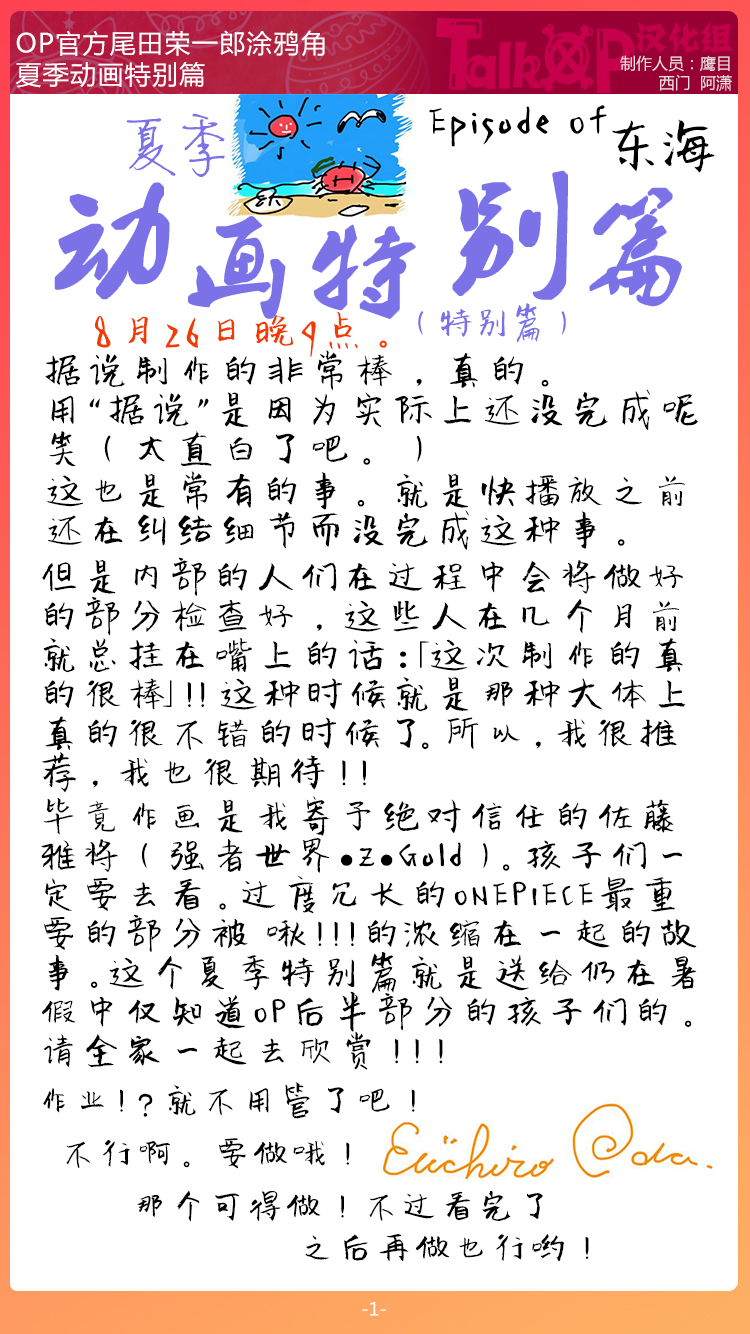 OP官方尾田荣一郎涂鸦角
夏季动画特别篇
TalkOP汉化组
制作人员：鹰目
西门 阿潇
夏季
Episode of 东海
动画特别篇
8月26日晚9点。（特别篇）
据说制作的非常棒，真的。
用“据说”是因为实际上还没完成呢
笑（太直白了吧。）
这也是常有的事。就是快播放之前
还在纠结细节而没完成这种事。
但是内部的人们在过程中会将做好
的部分检查好，这些人在几个月前
就总挂在嘴上的话：「这次制作的真
的很棒」!!这种时候就是那种大体上
真的很不错的时候了。所以，我很推
荐，我也很期待!!
毕竟作画是我寄予绝对信任的佐藤
雅将（强者世界•Z•Gold）。孩子们一
定要去看。过度冗长的ONEPIECE最重
要的部分被 啾!!!的浓缩在一起的故
事。这个夏季特别篇就是送给仍在暑
假中仅知道OP后半部分的孩子们的。
请全家一起去欣赏!!!
作业!?就不用管了吧!
不行啊。要做哦!
Eiichiro Oda.
那个可得做!不过看完了
之后再做也行哟!
-1-